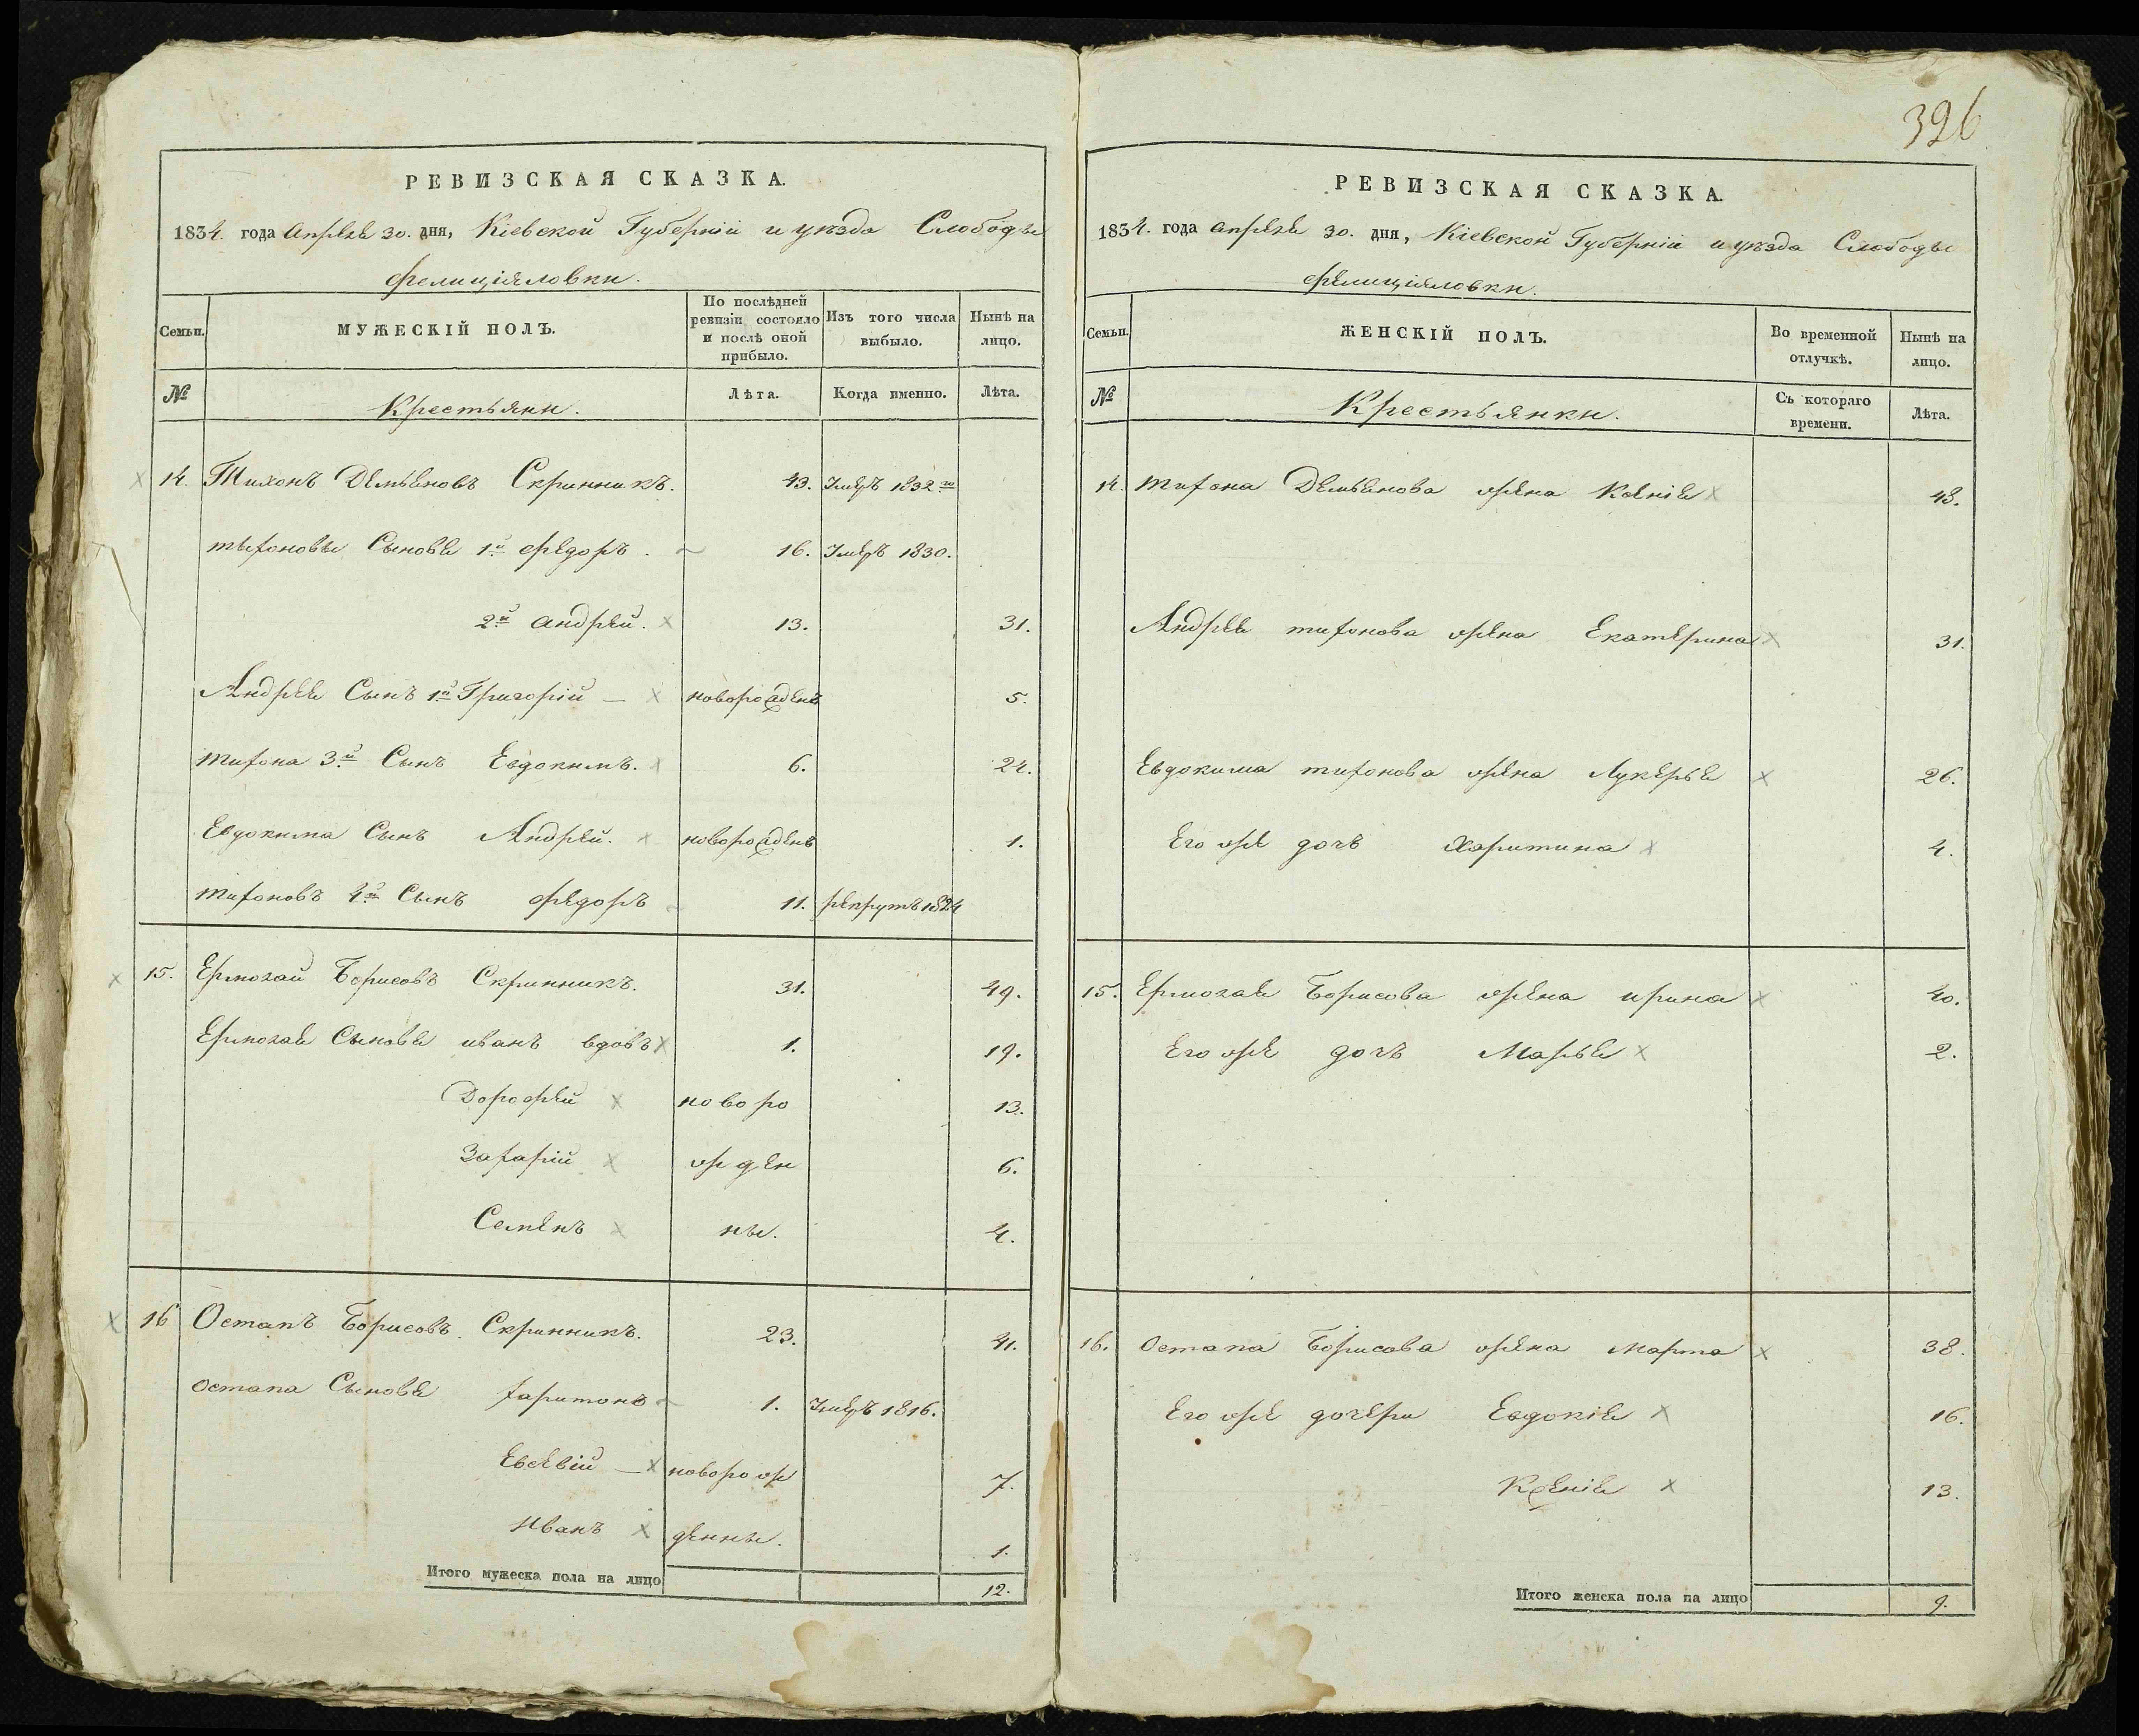 326
РЕВИЗСКАЯ СКАЗКА.
1834. года Апреля 30. дня, Кіевской Губерніи и уѣзда Слободы
Фелиціяловки.
Семьи. МУЖЕСКІЙ ПОЛЪ. По послѣдней ревизіи состояло и послѣ оной прибыло. Изъ того числа выбыло. Нынѣ на лицо.
№ Крестьяни. Лѣта. Когда именно. Лѣта.
14. Тихонъ Демьяновъ Скринникъ. 43. Умеръ 1832го
тыхоновы Сыновя 1й Федоръ. 16. Умеръ 1830.
2й Андрей. 13. 31.
Андрея Сынъ 1й Григорій — новорожденъ 5.
тихона 3й Сынъ Евдокимъ. 6. 24.
Евдокима Сынъ Андрей. новорожденъ 1.
тихоновъ 4й Сынъ Федоръ 11. рекрутъ 1824
15. Ермолай Борисовъ Скринникъ. 31. 49.
Ермолая Сыновя иванъ вдовъ 1. 19.
Дорофей новоро 13.
Захарій жден 6.
Семенъ ны. 4.
16 Остапъ Борисовъ Скринникъ. 23. 41.
остапа Сыновя харитонъ 1. Умеръ 1816.
Евсевій — новорож 7.
Иванъ денны. 1.
Итого мужеска пола на лицо 12.
РЕВИЗСКАЯ СКАЗКА.
1834. года апреля 30. дня, Кіевской Губерніи и уѣзда Слободы
Фелиціяловки.
Семьи. ЖЕНСКІЙ ПОЛЪ. Во временной отлучкѣ. Нынѣ на лицо.
№ Крестьянки. Съ котораго времени. Лѣта.
14. тихона Демьянова жена Ксенія 48.
Андрея тихонова жена Екатерина 31.
Евдокима тихонова жена Лукерья 26.
Его же дочь Харитина 4.
15. Ермолая Борисова жена ирина 40.
Его же дочь Марья 2.
16. Остапа Борисова жена Марта 38.
Его же дочери Евдокія 16.
Ксенія 13.
Итого женска пола на лицо 9.